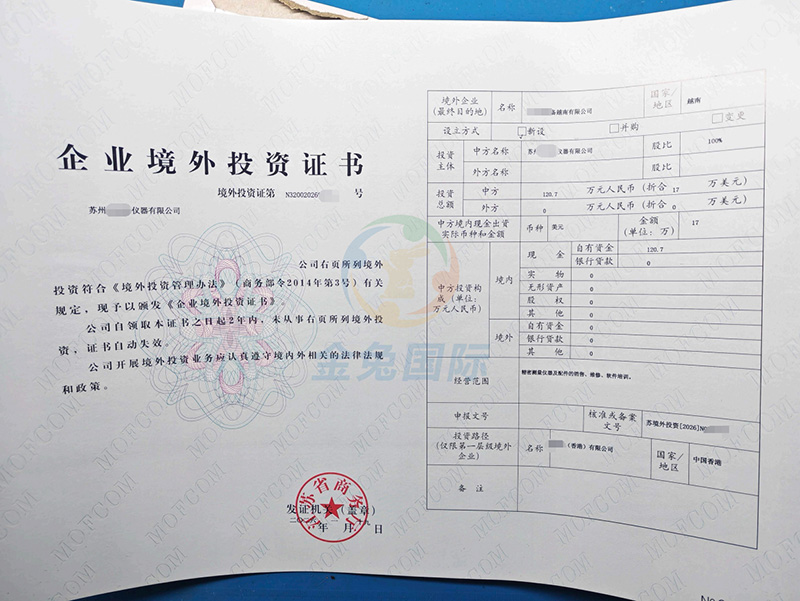 企业境外投资证书
境外投资证第 N32002026 号
苏州 仪器有限公司
公司右页所列境外
投资符合《境外投资管理办法》（商务部令2014年第3号）有关
规定，现予以颁发《企业境外投资证书》。
公司自领取本证书之日起2年内，未从事右页所列境外投
资，证书自动失效。
公司开展境外投资业务应认真遵守境内外相关的法律法规
和政策。
发证机关（盖章）
年 月 日
江苏省商务厅
境外企业（最终目的地） 名称 备越南有限公司 国家/地区 越南
设立方式 新设 并购 变更
投资主体 中方名称 苏州 仪器有限公司 股比 100%
外方名称 股比
投资总额 中方 120.7 万元人民币（折合 17 万美元）
外方 0 万元人民币（折合 0 万美元）
中方境内现金出资实际币种和金额 币种 美元 金额（单位：万） 17
中方投资构成（单位：万元人民币） 境内 现金 自有资金 120.7
银行贷款 0
实物 0
无形资产 0
股权 0
其他 0
境外 自有资金 0
银行贷款 0
其他 0
经营范围 精密测量仪器及配件的销售、维修、软件培训。
申报文号 核准或备案文号 苏境外投资[2026]N
投资路径（仅限第一层级境外企业） 名称 （香港）有限公司 国家/地区 中国香港
备注
金兔国际
MOFCOM